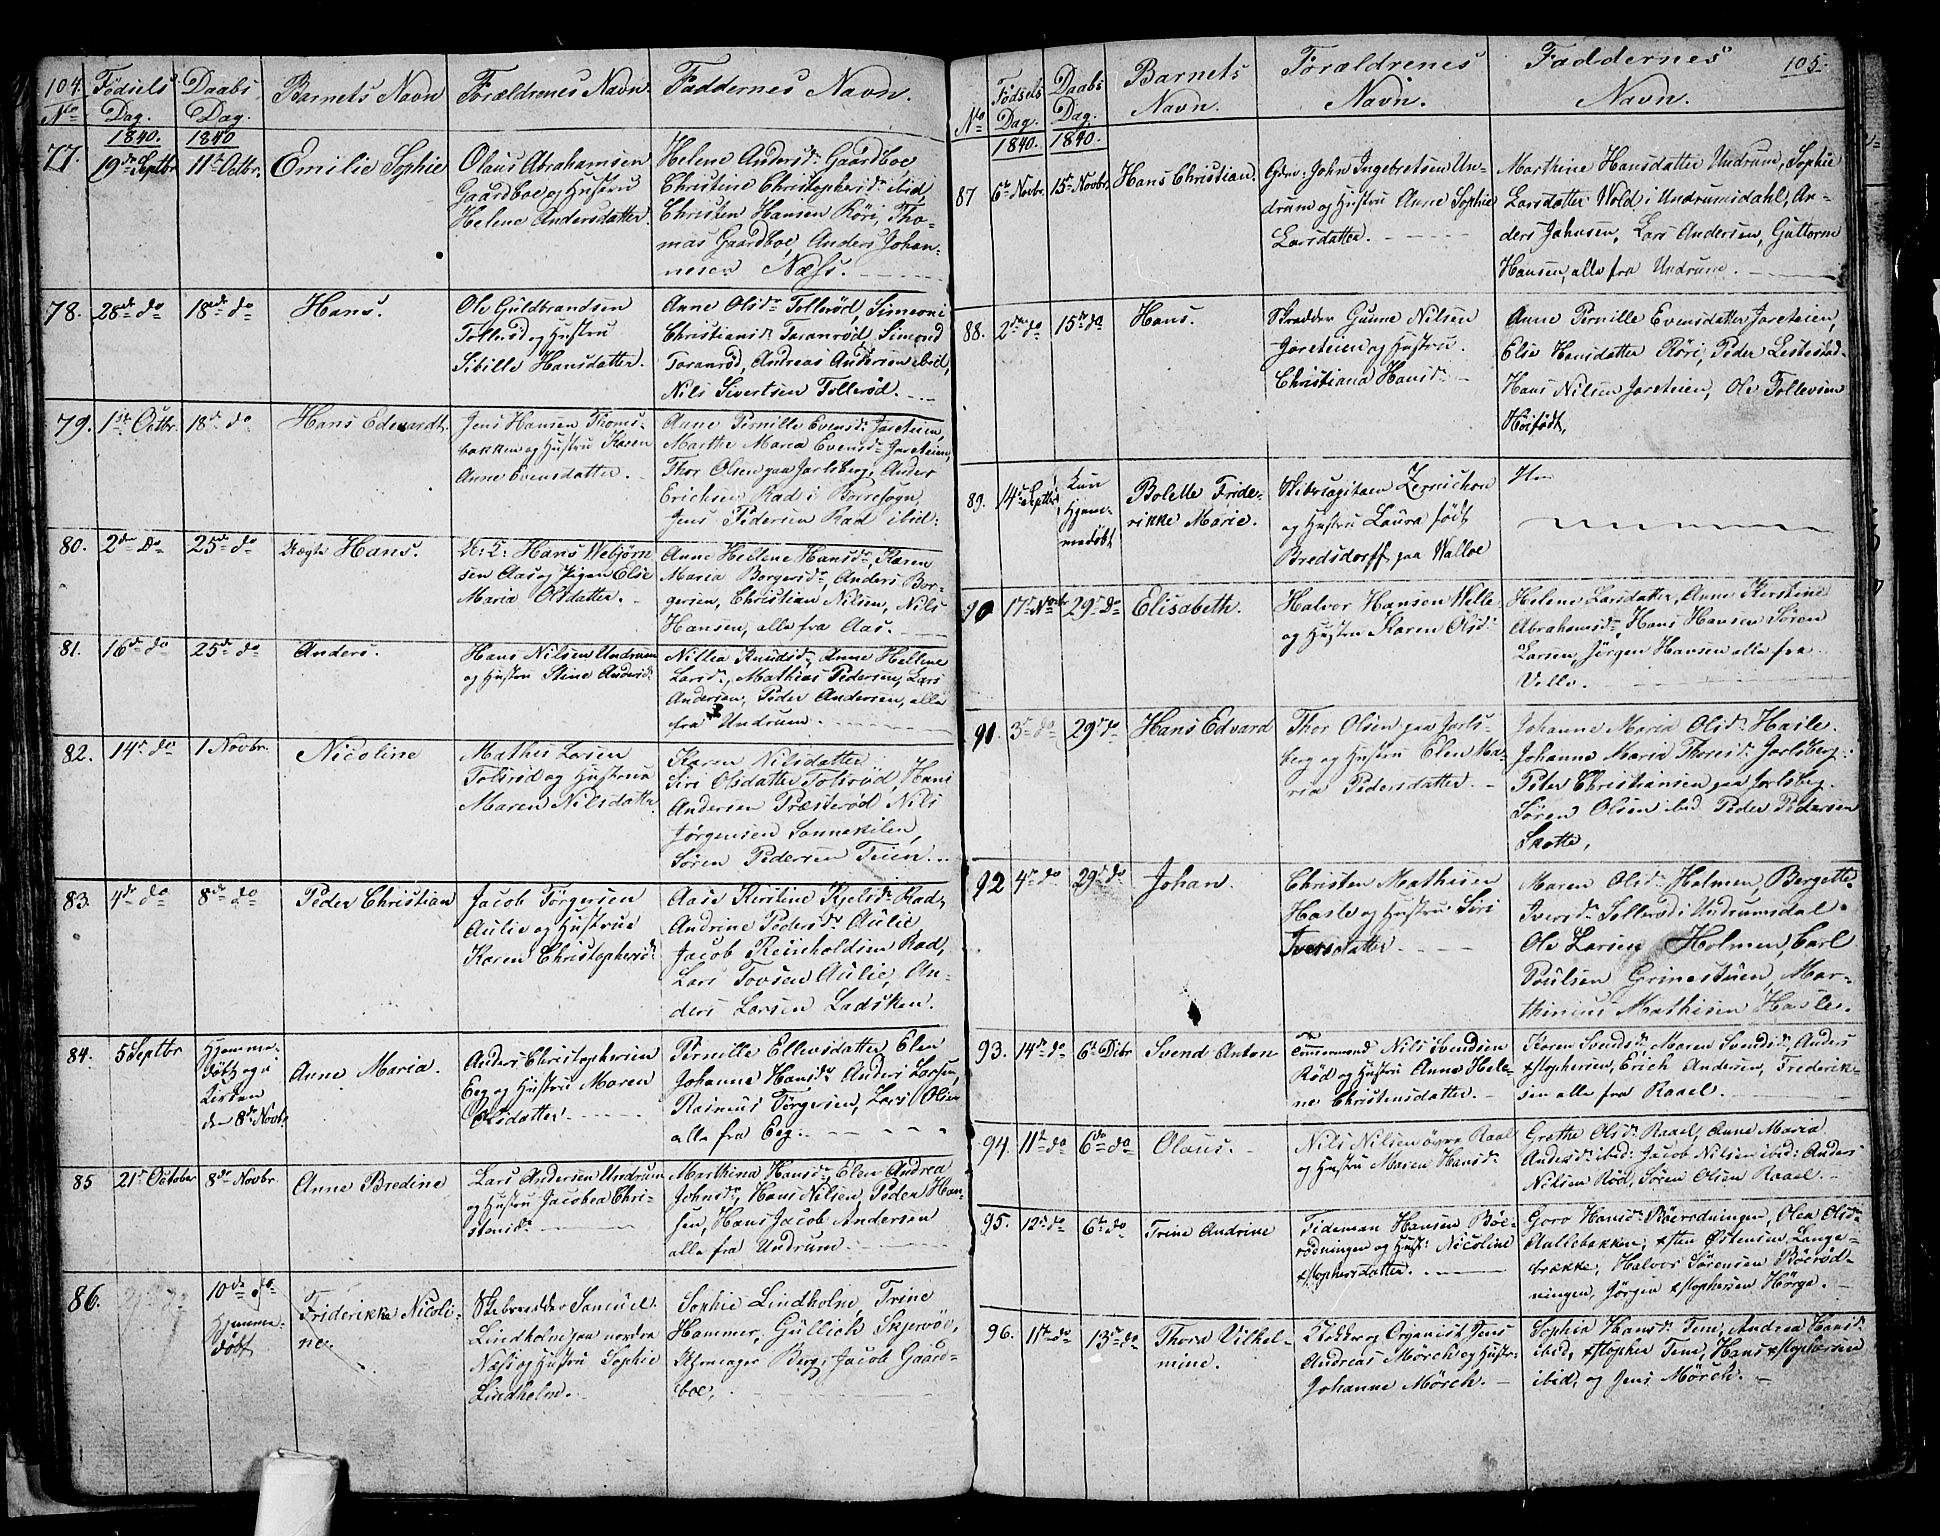 104. Fødsels Daabs Barnets Navn Forældrenes Navn. Faddernes Navn.
No Dag. Dag.
1840. 1840
77. 19de Septbr. 11te Octbr. Emilie Sophie Olaus Abrahamsen
Gaardboe og Hustru
Helene Andersdatter.
Helene Andersdr Gaardboe,
Christine Christophersdr ibid,
Christen Hansen Röri, Tho-
mas Gaardboe, Anders Johan-
nesen Næss.
78. 28de do 18de do Hans. Ole Guldbrandsen
Tollerød og Hustru
Sibille Hansdatter.
Anne Olsdr Tollerød, Simeoni
Christiansdr Taranrød, Simond
Taranrød, Andreas Andersen ibid,
Nils Sivertsen Tollerød.
79. 1ste Octbr. 18de do Hans Edvardt. Jens Hansen Thoms-
bakken og Hustru Karen
Anne Evensdatter.
Anne Pernille Evensdr Jareteien,
Marthe Maria Evensdr Jareteien,
Thor Olsen paa Jarlsberg, Anders
Erichsen Rad i Borresogn
Jens Pedersen Rad ibid:
80. 2de do 25de do Uægte Hans. Hans Webjørn-
sen Aas og Pigen Else
Maria Olsdatter.
Anne Helene Hansdr, Karen
Maria Borgersdr, Anders Bor-
gersen, Christian Nilsen, Nils
Hansen, alle fra Aas.
81. 16de do 25de do Anders. Hans Nilsen Undrum
og Hustru Stine Andersdr
Nillia Knudsdr, Anne Hellene
Larsdr, Mathias Pedersen, Lars
Andersen, Peder Andersen, alle
fra Undrum.
82. 14de do 1 Novbr. Nicoline Mathis Larsen
Tolsrød og Hustrue
Maren Nilsdatter
Karen Nilsdatter
Siri Olsdatter Tolsrød, Hans
Andersen Præsterød Nils
Jørgensen Sannekilen,
Søren Pedersen Teien.
83. 4de do 8de do Peder Christian Jacob Tørgersen
Aulie og Hustrue
Karen Christophersdr
Aase Kirstine Kjelsdr Rad,
Andrine Pedersdr Aulie
Jacob Reinholdsen Rad,
Lars Tovsen Aulie, An-
ders Larsen Ladsken.
84. 5 Septbr Hjemme-
døbt og i
Kirken
den 8de Novbr.
Anne Maria. Anders Christophersen
Eeg og Hustru Maren
Olsdatter.
Pernille Ellevsdatter Elen
Johanne Hansdr Anders Larsen,
Rasmus Tørgersen, Lars Olsen
alle fra Eeg.
85 21de October 8de Novbr. Anne Bredine Lars Andersen Undrum
og Hustru Jacobea Chri-
stensdr
Marthina Hansdr, Elen Andrea
Johnsdr, Hans Nilsen, Peder Han-
sen, Hans Jacob Andersen
alle fra Undrum.
86. 10de do
Hjemme-
døbt
Friderikke Nicoli-
ne. Skibsredder Samuel
Lindholm paa nordre
Næs og Hustru Sophie
Lindholm.
Sophie Lindholm, Trine
Hammer, Güllich Skjervøe,
Berg, Jacob Gaard-
boe,
105.
No Fødsels Dag. Daabs Dag. Barnets Navn. Forældrenes Navn. Faddernes Navn.
1840. 1840.
87 6te Novbr. 15de Novbr. Hans Christian. Gdmr: John Ingebretsen Un-
drum og Hustru Anne Sophie
Larsdatter.
Marthine Hansdatter Undrum, Sophie
Larsdatter Wold i Undrumsdahl, An-
ders Johnsen, Lars Andersen, Guttorm
Hansen, alle fra Undrum.
88. 2den do 15de do Hans. Skrædder Gunne Nilsen
Jareteien og Hustru
Christiana Hansdr
Anne Pernille Evensdatter Jareteien,
Else Hansdatter Röri, Peder Lestestad
Hans Nilsen Jareteien, Ole Tollevsen
Høifødt,
89. 14de Septbr. Kun
Hjem-
medøbt
Bolette Fride-
rikke Marie. Skibscapitaen Zernichow
og Hustru Laura født
Bredsdorff, paa Walloe
90 17de Novbr 29de do Elisabeth. Halvor Hansen Welle
og Hustru Karen Olsdr
Helene Larsdatter, Anne Kirstine
Abrahamsdr, Hans Hansen Søren
Larsen, Jørgen Hansen alle fra
Velle.
91. 3de do 29de do Hans Edvard Thor Olsen paa Jarls-
berg og Hustru Elen Ma-
ria Pedersdatter.
Johanne Maria Olsdr Hasle.
Johanne Maria Thoresdr Jarlsberg.
Peter Christiansen paa Jarlsberg.
Søren Olsen ibid. Peder Pedersen
Skotte,
92 4de do 29de do Johan. Christen Mathisen
Hasle og Hustru Siri
Iversdatter
Maren Olsdr Holmen, Bergette
Iversdr Sollerød i Undrumsdal.
Ole Larsen Holmen, Carl
Poulsen Grimestuen, Mar-
thinius Mathisen Hasle.
93. 14de do 6te Decbr. Svend Anton Tømmermand Nils Svendsen
Rød og Hustru Anne Hele-
ne Christensdatter.
Karen Svendsdr, Maren Svendsdr, Anders
Xstophersen, Erich Andersen, Frederik-
sen alle fra Raael.
94. 11te do 6te do Olaus. Nils Nilsen øvre Raal
og Hustru Maren Hansdr.
Grethe Olsdr Raael, Anne Maria
Andersdr ibid: Jacob Nilsen ibid: Anders
Nilsen Rød, Søren Olsen Raael.
95. 12te do 6te do Trine Andrine Tideman Hansen Böe-
rødningen og Hust: Nicoline
Xstophersdatter.
Goro Hansdr Böerødningen, Olea Olsdr
Aallebakken, Xsten Østensen Lange-
brække, Halvor Sörensen Böerød-
ningen, Jörgen Xstophersen Hörge.
96. 11te do 13de do Thora Vilhel-
mine. Klokker og Organist Jens
Andreas Mörch og Hustr.
Johanne Mörch.
Sophia Hansdr Tem, Andrea Hansdr
ibid, Xstopher Tem, Hans Xstophersen
ibid, og Jens Mörch.